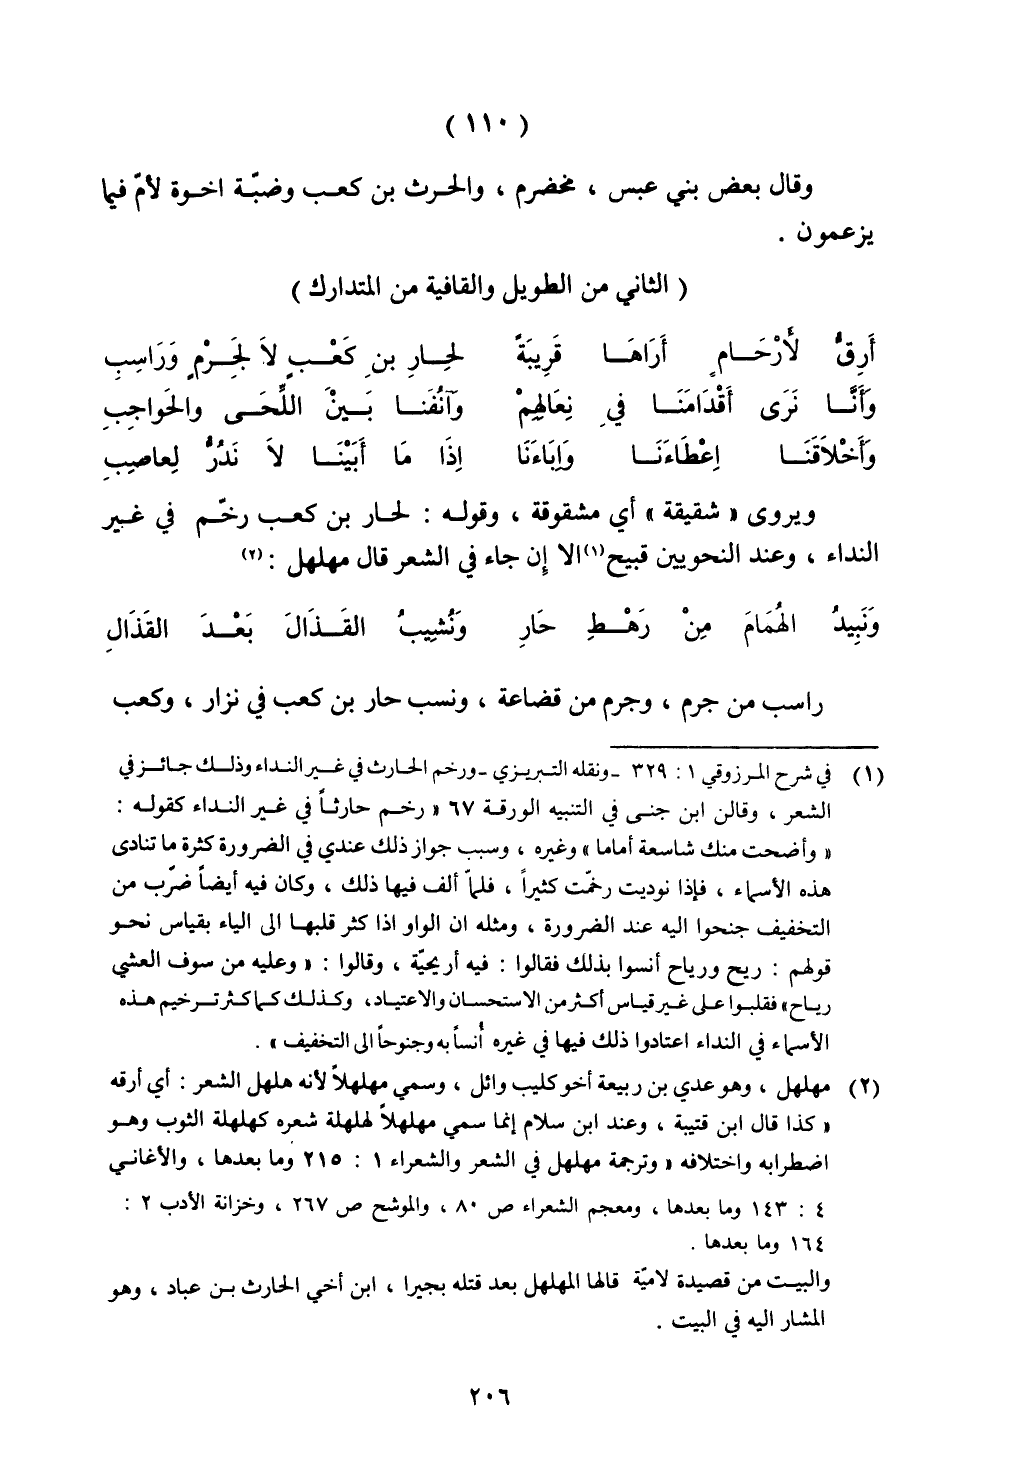 ( ١١٠ )
وقال بعض بني عبس ، مخضرم ، والحرث بن كعب وضبّة اخوة لأمّ فيما
يزعمون .
( الثاني من الطويل والقافية من المتدارك )
أَرِقُّ لأَرْحَامٍ أَرَاهَا قَرِيبَةً لحِارِ بنِ كَعْبٍ لاَ لجَرْمٍ وَرَاسِبِ
وَأَنَّا نَرَى أَقْدَامَنَا في نِعَالهِمْ وَآنُفَنا بَينَْ اللِّحَى والحَواجِبِ
وَأَخْلاَقَنَا إعْطَاءَنَا وَإبَاءَنَا إذَا مَا أَبَيْنَا لاَ نَدُرُّ لِعاصِبِ
ويروى « شقيقة » أي مشقوقة ، وقوله : لحار بن كعب رخّم في غير
النداء ، وعند النحويين قبيح(١) الا إن جاء في الشعر قال مهلهل :(٢)
وَنَبِيدُ الهُمَامَ مِنْ رَهْطِ حَارِ وَنُشِيبُ القَذَالَ بَعْدَ القَذَالِ
راسب من جرم ، وجرم من قضاعة ، ونسب حار بن كعب في نزار ، وكعب
(١) في شرح المرزوقي ١ : ٣٢٩ -ونقله التبريزي -ورخم الحارث في غير النداء وذلك جائز في
الشعر ، وقالن ابن جنى في التنبيه الورقة ٦٧ « رخم حارثاً في غير النداء كقوله :
« وأضحت منك شاسعة أماما » وغيره ، وسبب جواز ذلك عندي في الضرورة كثرة ما تنادى
هذه الأسماء ، فإذا نوديت رخمّت كثيراً ، فلمّا ألف فيها ذلك ، وكان فيه أيضاً ضرّب من
التخفيف جنحوا اليه عند الضرورة ، ومثله ان الواو اذا كثر قلبها الى الياء بقياس نحو
قولهم : ريح ورياح أنسوا بذلك فقالوا : فيه أريحيّة ، وقالوا : « وعليه من سوف العشي
رياح» فقلبوا على غير قياس أكثر من الاستحسان والاعتياد، وكذلك كما كثر ترخيم هذه
الأسماء في النداء اعتادوا ذلك فيها في غيره أنساً به وجنوحاً الى التخفيف » .
(٢) مهلهل ، وهو عدي بن ربيعة أخو كليب وائل ، وسمي مهلهلاً لأنه هلهل الشعر : أي أرقه
« كذا قال ابن قتيبة ، وعند ابن سلام إنما سمي مهلهلاً لهلهلة شعره كهلهلة الثوب وهو
اضطرابه واختلافه « وترجمة مهلهل في الشعر والشعراء ١ : ٢١٥ وما بعدها ، والأغاني
٤ : ١٤٣ وما بعدها ، ومعجم الشعراء ص ٨٠ ، والموشح ص ٢٦٧ ، وخزانة الأدب ٢ :
١٦٤ وما بعدها .
والبيت من قصيدة لاميّة قالها المهلهل بعد قتله بجيرا ، ابن أخي الحارث بن عباد ، وهو
المشار اليه في البيت .
٢٠٦